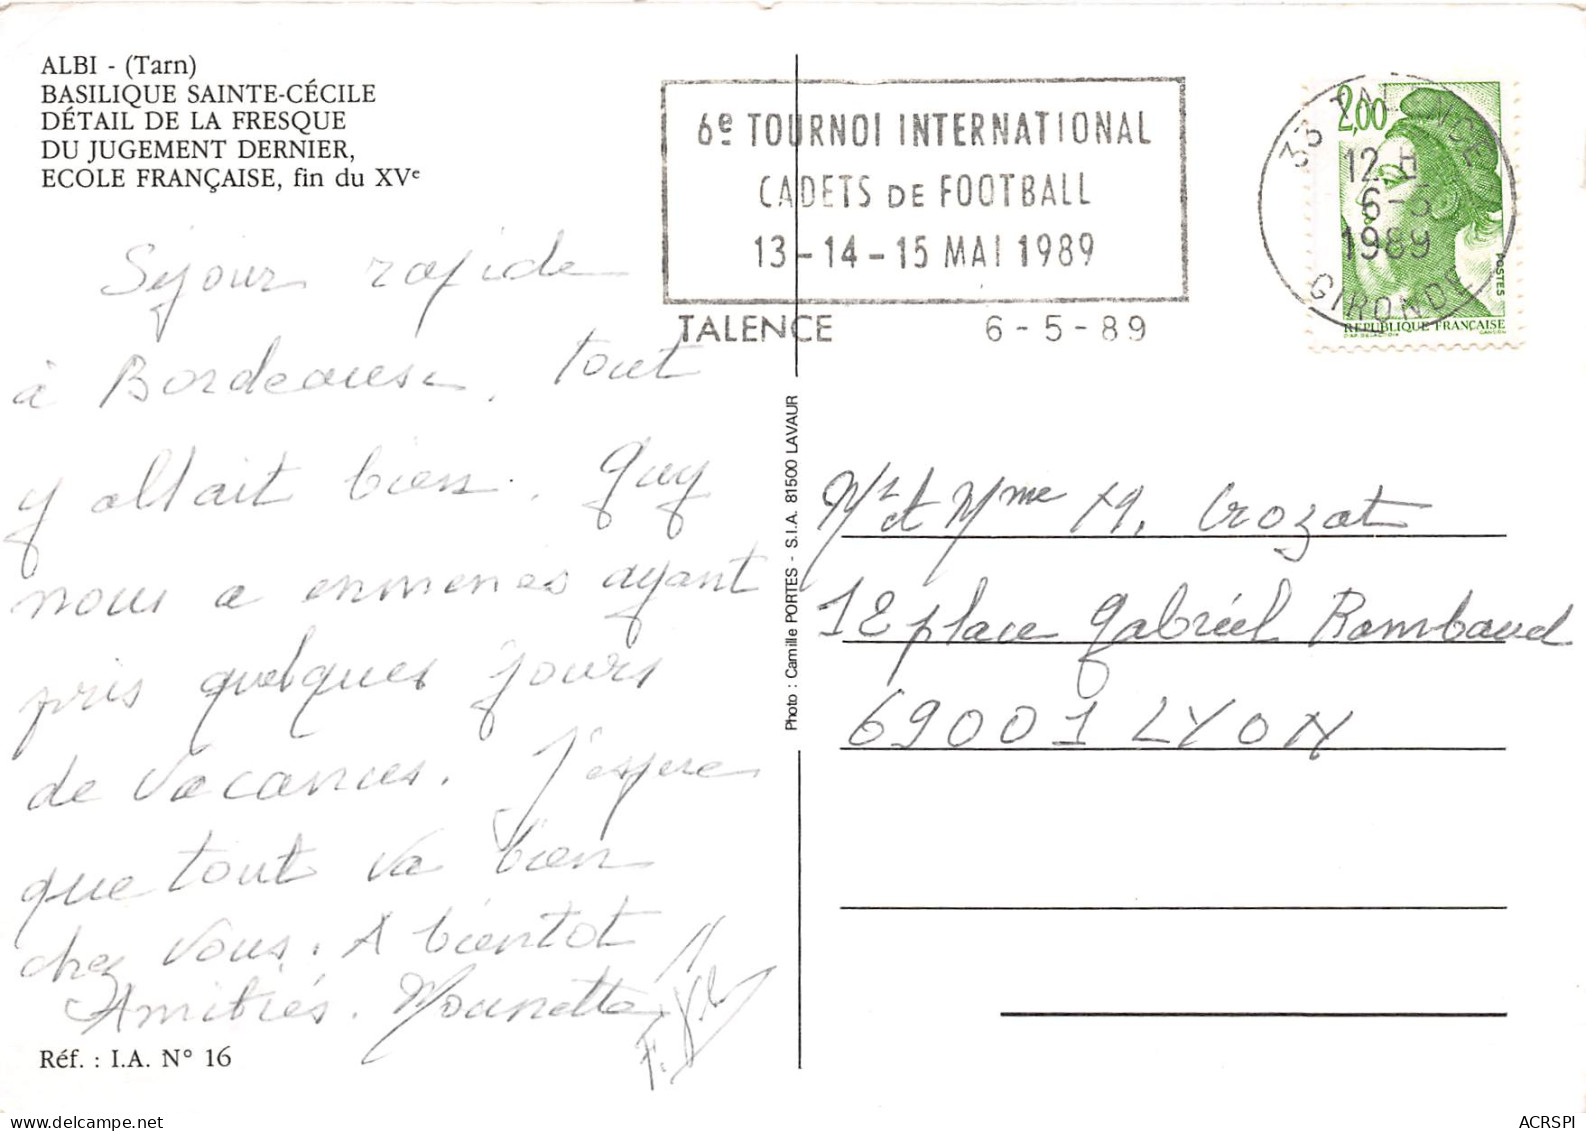 ALBI - (Tarn)
BASILIQUE SAINTE-CÉCILE
DÉTAIL DE LA FRESQUE
DU JUGEMENT DERNIER,
ECOLE FRANÇAISE, fin du XVe
Séjour rapide
à Bordeaux, tout
y allait bien. Guy
nous a emmenés ayant
pris quelques jours
de vacances. J'espère
que tout va bien
chez vous. A bientot
Amitiés.
Réf. : I.A. N° 16
6e TOURNOI INTERNATIONAL
CADETS DE FOOTBALL
13-14-15 MAI 1989
TALENCE 6-5-89
33 TALENCE
12 H
6-5
1989
GIRONDE
2,00
POSTES
REPUBLIQUE FRANÇAISE
Photo : Camille PORTES - S.I.A. 81500 LAVAUR
Mr et Mme M. Crozat
12 place Gabriel Rambaud
69001 LYON
ACRSPI